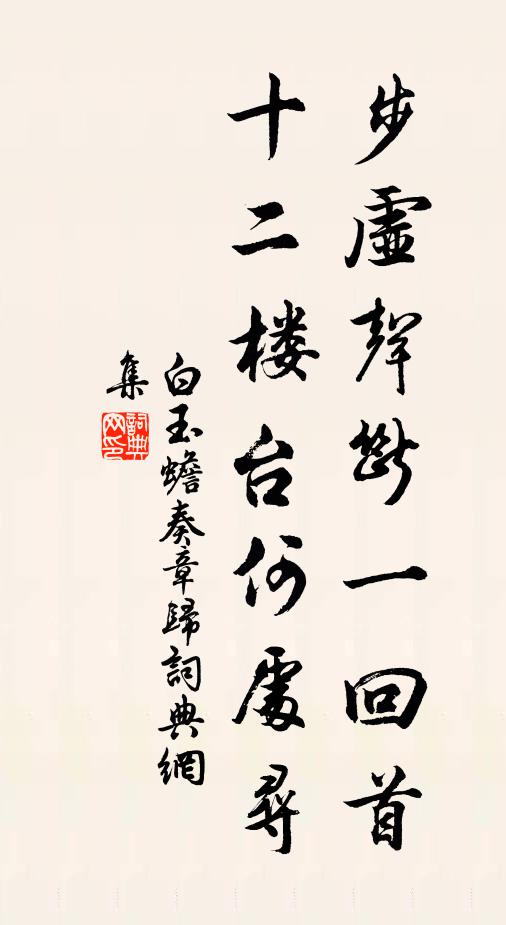 步虛聲斷一回首
十二楼台何處尋
白玉蟾奏章歸詞典網
集
詞典網印